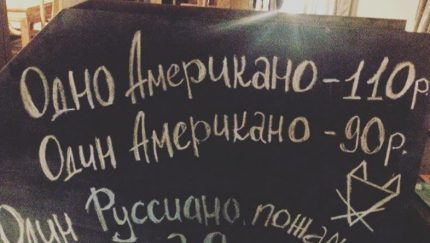 Одно Американо - 110 р.
Один Американо - 90 р.
Один Руссиано, пожал